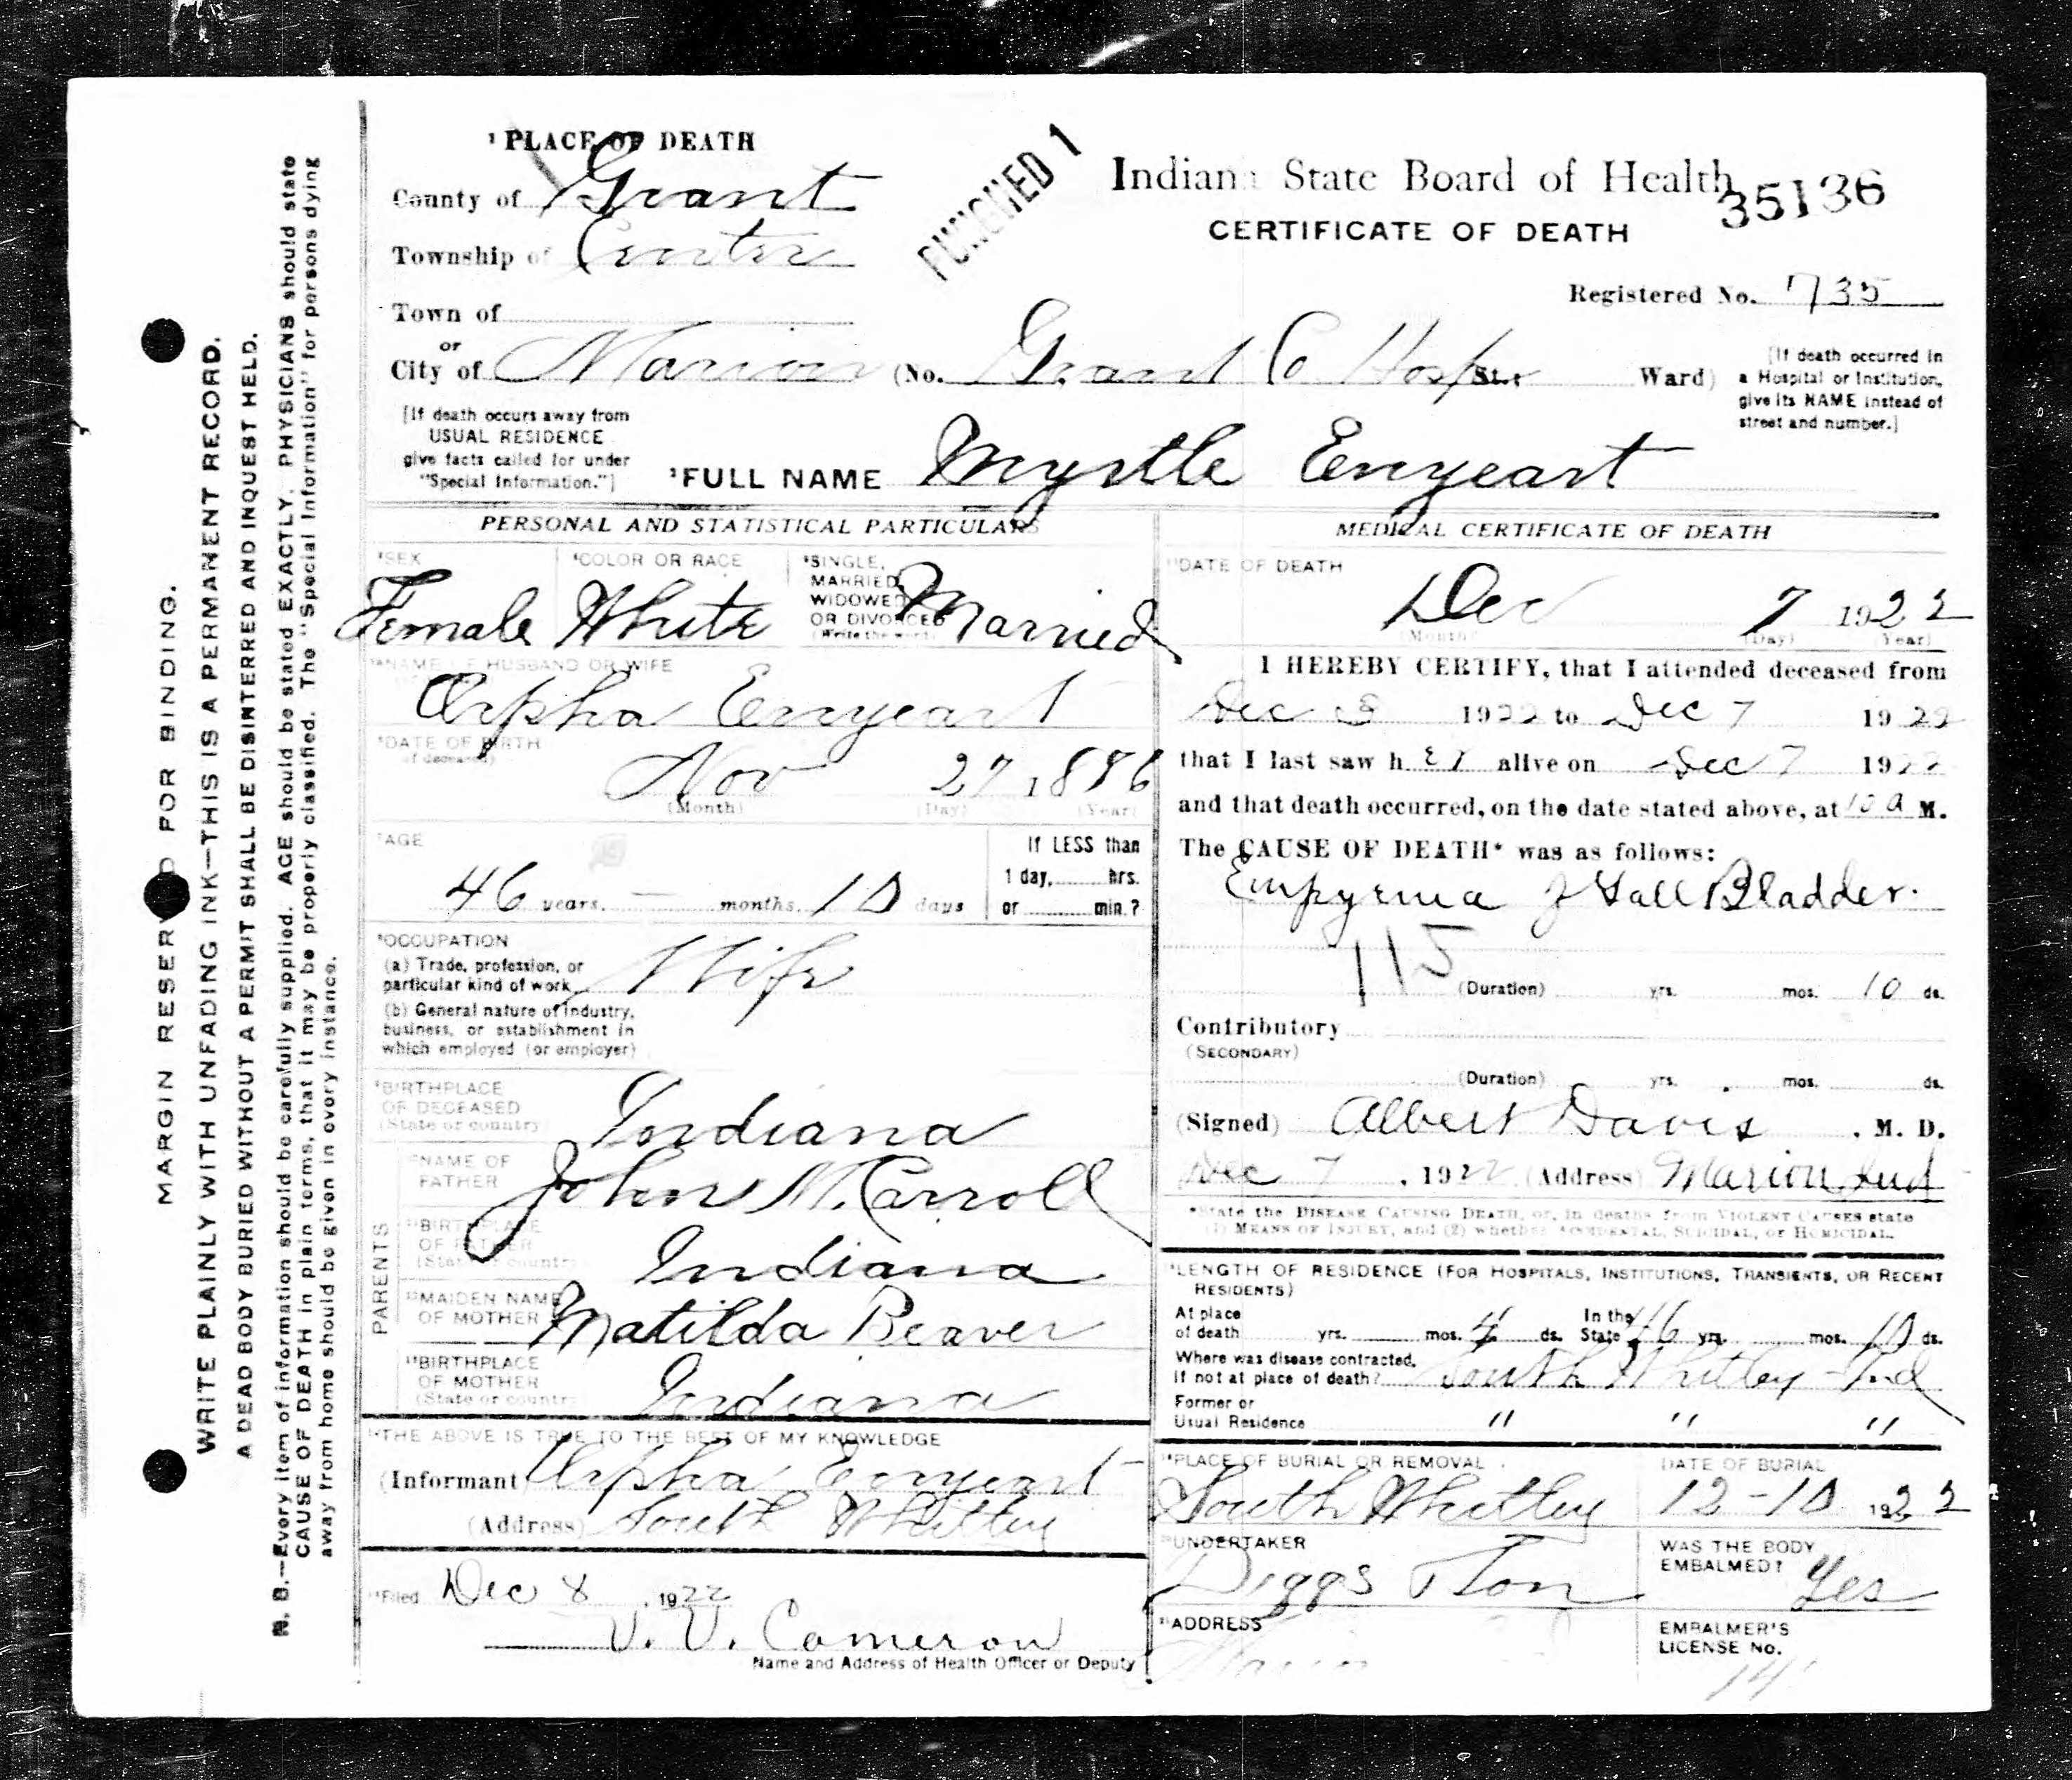 MARGIN RESERVED FOR BINDING.
WRITE PLAINLY WITH UNFADING INK—THIS IS A PERMANENT RECORD.
A DEAD BODY BURIED WITHOUT A PERMIT SHALL BE DISINTERRED AND INQUEST HELD.
N. B.—Every item of information should be carefully supplied. AGE should be stated EXACTLY. PHYSICIANS should state
CAUSE OF DEATH in plain terms, that it may be properly classified. The "Special Information" for persons dying
away from home should be given in every instance.
1 PLACE OF DEATH
County of Grant
Township of Center
Town of
or
City of Marion (No. Grant Co Hosp St.; Ward)
PUNCHED 1
Indiana State Board of Health
35136
CERTIFICATE OF DEATH
Registered No. 735
[If death occurred in
a Hospital or Institution,
give its NAME instead of
street and number.]
[If death occurs away from
USUAL RESIDENCE
give facts called for under
"Special Information."]
FULL NAME Myrtle Enyeart
PERSONAL AND STATISTICAL PARTICULARS
SEX
Female
COLOR OR RACE
White
SINGLE,
MARRIED,
WIDOWED
OR DIVORCED
(Write the word)
Married
NAME OF HUSBAND OR WIFE
Orpha Enyeart
DATE OF BIRTH
of deceased)
Nov 27 1876
(Month) (Day) (Year)
AGE
46 years. — months. 10 days
If LESS than
1 day, hrs.
or min.?
OCCUPATION
(a) Trade, profession, or
particular kind of work Wife
(b) General nature of industry,
business, or establishment in
which employed (or employer)
BIRTHPLACE
OF DECEASED
(State or country) Indiana
PARENTS
NAME OF
FATHER John N. Carroll
BIRTHPLACE
OF FATHER
(State or country) Indiana
MAIDEN NAME
OF MOTHER Matilda Beaver
BIRTHPLACE
OF MOTHER
(State or country) Indiana
THE ABOVE IS TRUE TO THE BEST OF MY KNOWLEDGE
(Informant Orpha Enyeart
(Address) South Whitley
Filed Dec 8, 1922
V. V. Cameron
Name and Address of Health Officer or Deputy
MEDICAL CERTIFICATE OF DEATH
DATE OF DEATH
Dec 7 1922
(Month) (Day) (Year)
I HEREBY CERTIFY, that I attended deceased from
Dec 3 1922 to Dec 7 1922
that I last saw h er alive on Dec 7 1922
and that death occurred, on the date stated above, at 10 a M.
The CAUSE OF DEATH* was as follows:
Empyema of Gall Bladder.
115
(Duration) yrs. mos. 10 ds.
Contributory
(SECONDARY)
(Duration) yrs. mos. ds.
(Signed) Albert Davis, M. D.
Dec 7, 1922 (Address) Marion Ind
*State the DISEASE CAUSING DEATH, or, in deaths from VIOLENT CAUSES state
(1) MEANS OF INJURY, and (2) whether ACCIDENTAL, SUICIDAL, or HOMICIDAL.
LENGTH OF RESIDENCE (FOR HOSPITALS, INSTITUTIONS, TRANSIENTS, OR RECENT
RESIDENTS)
At place
of death yrs. mos. 4 ds.
In the
State 46 yrs. mos. 10 ds.
Where was disease contracted,
If not at place of death? South Whitley - Ind
Former or
Usual Residence " " "
PLACE OF BURIAL OR REMOVAL
South Whitley
DATE OF BURIAL
12-10 1922
UNDERTAKER
Diggs & Son
WAS THE BODY
EMBALMED? Yes
ADDRESS
EMBALMER'S
LICENSE No.